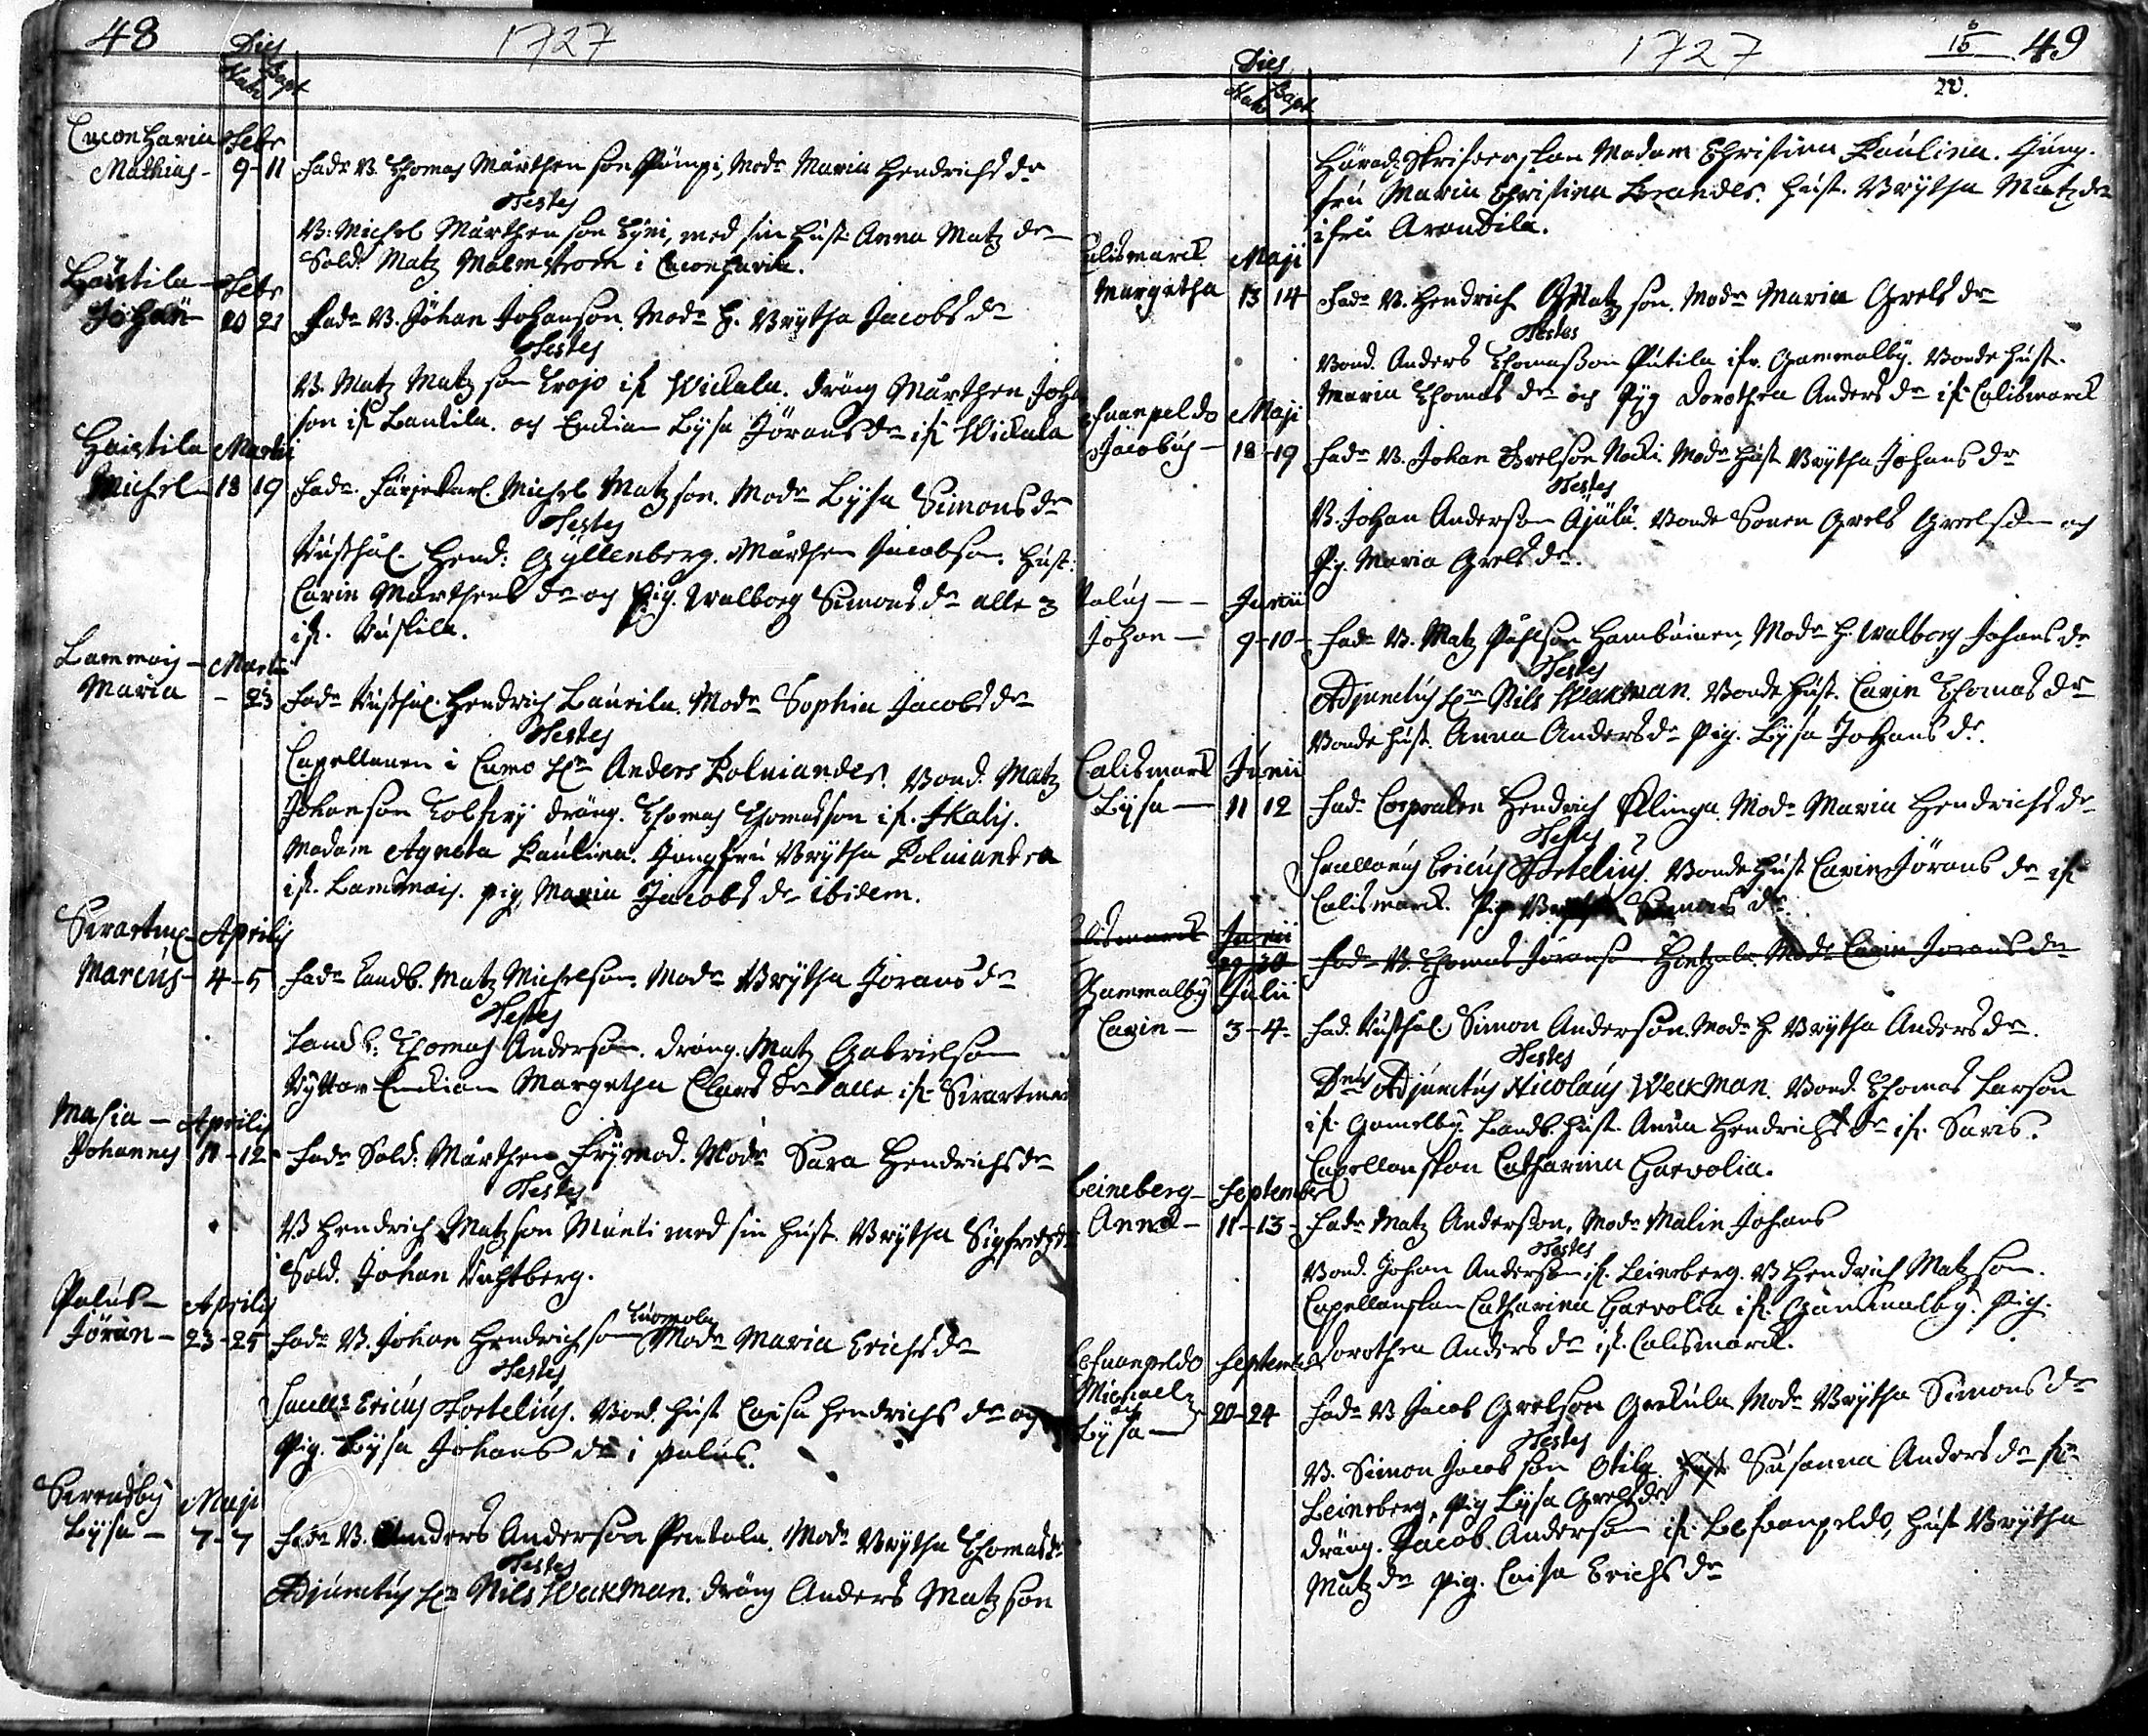 48
1727
Dies
Nat. Bapt
Cuconharia Febr
Mathias - 9-11 Fadr B. Thomas Mårthenson Pämpi, Modr Maria Hendrichsdr
Testes
B. Michel Mårthenson Hyvi, med sin hust. Anna Matzdr
Sold. Matz Malmstrom i Cuconharia.
Haistila - Febr
Johan - 20 21 Fadr B. Johan Johanson. Modr h. Brytha Jacobsdr
Testes
B. Matz Matzson Trojo ifr. Wickala. dräng Mårthen Joh
son ifr Lankila. och Enkian Lysa Jöransdr ifr Wickala
Haistila Martii
Michel - 18 19 Fadr. Färjekarl. Michel Matzson. Modr Lysa Simonsdr
Testes
Rusthål. Hend: Gyllenberg. Mårthen Jacobson. hust:
Carin Mårthensdr och Pig. Walborg Simonsdr alle 3
ifr.
Lammais - Martii
Maria - 23 Fadr Rusthål. Hendrich Laurila. Modr Sophia Jacobsdr
Testes
Capellanen i Cumo Hr Anders Polviander. Bond. Matz
Johanson dräng. Thomas Thomasson ifr. Akalis.
Madam Agneta Paulina. Jungfru Brytha Polviandra
ifr. Lammais. pig. Maria Jacobsdr ibidem.
Aprilis
Marcus - 4-5 Fadr Landb. Matz Michelson. Modr Brytha Joransdr
Testes
Landb: Thomas Anderson. dräng. Matz Gabrielson
Ryttar Enkian Margetha Clarsdr alle ifr
Masia - Aprilis
Johannes 11-12 - Fadr Sold: Mårthen Frymod. Modr Sara Hendrichsdr
Testes
B Hendrich Matzson Munti med sin hust. Brytha Sigfredsdr
Sold. Johan
Palus - Aprilis
Jöran - 23-25 Fadr B. Johan Hendrichson Luomola Modr Maria Erichsdr
Testes
Ericus Hortelius. Bond. hust Caisa Hendrichsdr och
Pig. Lysa Johansdr i palus.
Maji
Lysa - 7-7 Fadr B. Anders Anderson Pentola. Modr Brytha Thomasdr
Testes
Adjunctus Hr Nils Weckman. dräng Anders Matzson
1727
49
Dies
Nat. Bapt
Härad Skrifverskan Madam Christina Paulina. Jung-
fru Maria Christina Brander. hust. Brytha Matzdr
ifrå Arantila.
Calismarck Maji
Margetha 13 14 Fadr B. Hendrich Matzson. Modr Maria Grelsdr
Testes
Bond. Anders Thomasson Putila ifr. Gammalby. Bonde hust.
Maria Thomasdr och Pyg Dorothea Andersdr ifr Calismarck
Lefvanpeldo Maji
Jacobus - 18-19 Fadr B. Johan Grelson Nocki. Modr hust Brytha Johansdr
Testes
B. Johan Anderson Äjälä. Bonde Sonen Grels Grelson och
Pig. Maria Grelsdr.
Palus - - Junii
Johan - 9-10 - Fadr B. Matz Påhlson Hambainen, Modr h. Walborg Johansdr
Testes
Adjunctus Hr Nils Weckman. Bonde hust. Carin Thomasdr
Bonde hust. Anna Andersdr Pig. Lysa Johansdr.
Calismarck Junii
Lysa - 11 12 Fadr Corporalen Hendrich Klinga. Modr Maria Hendrichsdr
Testes
Ericus Hortelius. Bonde hust Carin Jöransdr ifr
Calismarck. Pig. Simonsdr.
Calismarck Junii
29 30 Fadr B. Thomas Jöranson Modr Carin Joransdr
Gammalby Julii
Carin - 3-4- Fad. Rusthål. Simon Anderson. Modr h. Brytha Andersdr.
Testes
Dns Adjunctus Nicolaus Weckman. Bond. Thomas Larson
ifr. Gamelby. Landb. hust. Anna Hendrichsdr ifr. Saris.
Capellanskan Catharina Garvolia.
Leineberg - September
Anna - 11-13 - Fadr Matz Anderson, Modr Malin Johans
Testes
Bond. Johan Anderson ifr. Leineberg. B Hendrich Matzson.
Capellanskan Catharina Garvolia ifr. Gammalby. Pig.
Dorothea Andersdr ifr. Calismarck.
Lefvanpeldo September
Michael
och
Lysa - 20-24 Fadr B Jacob Grelson Grekula Modr Brytha Simonsdr
Testes
B. Simon Jacobson Otila. hust Susanna Andersdr ifr
Leineberg, Pig Lysa Grelsdr
dräng. Jacob Anderson ifr. Lefvanpeldo, hust Brytha
Matzdr pig. Caisa Erichsdr